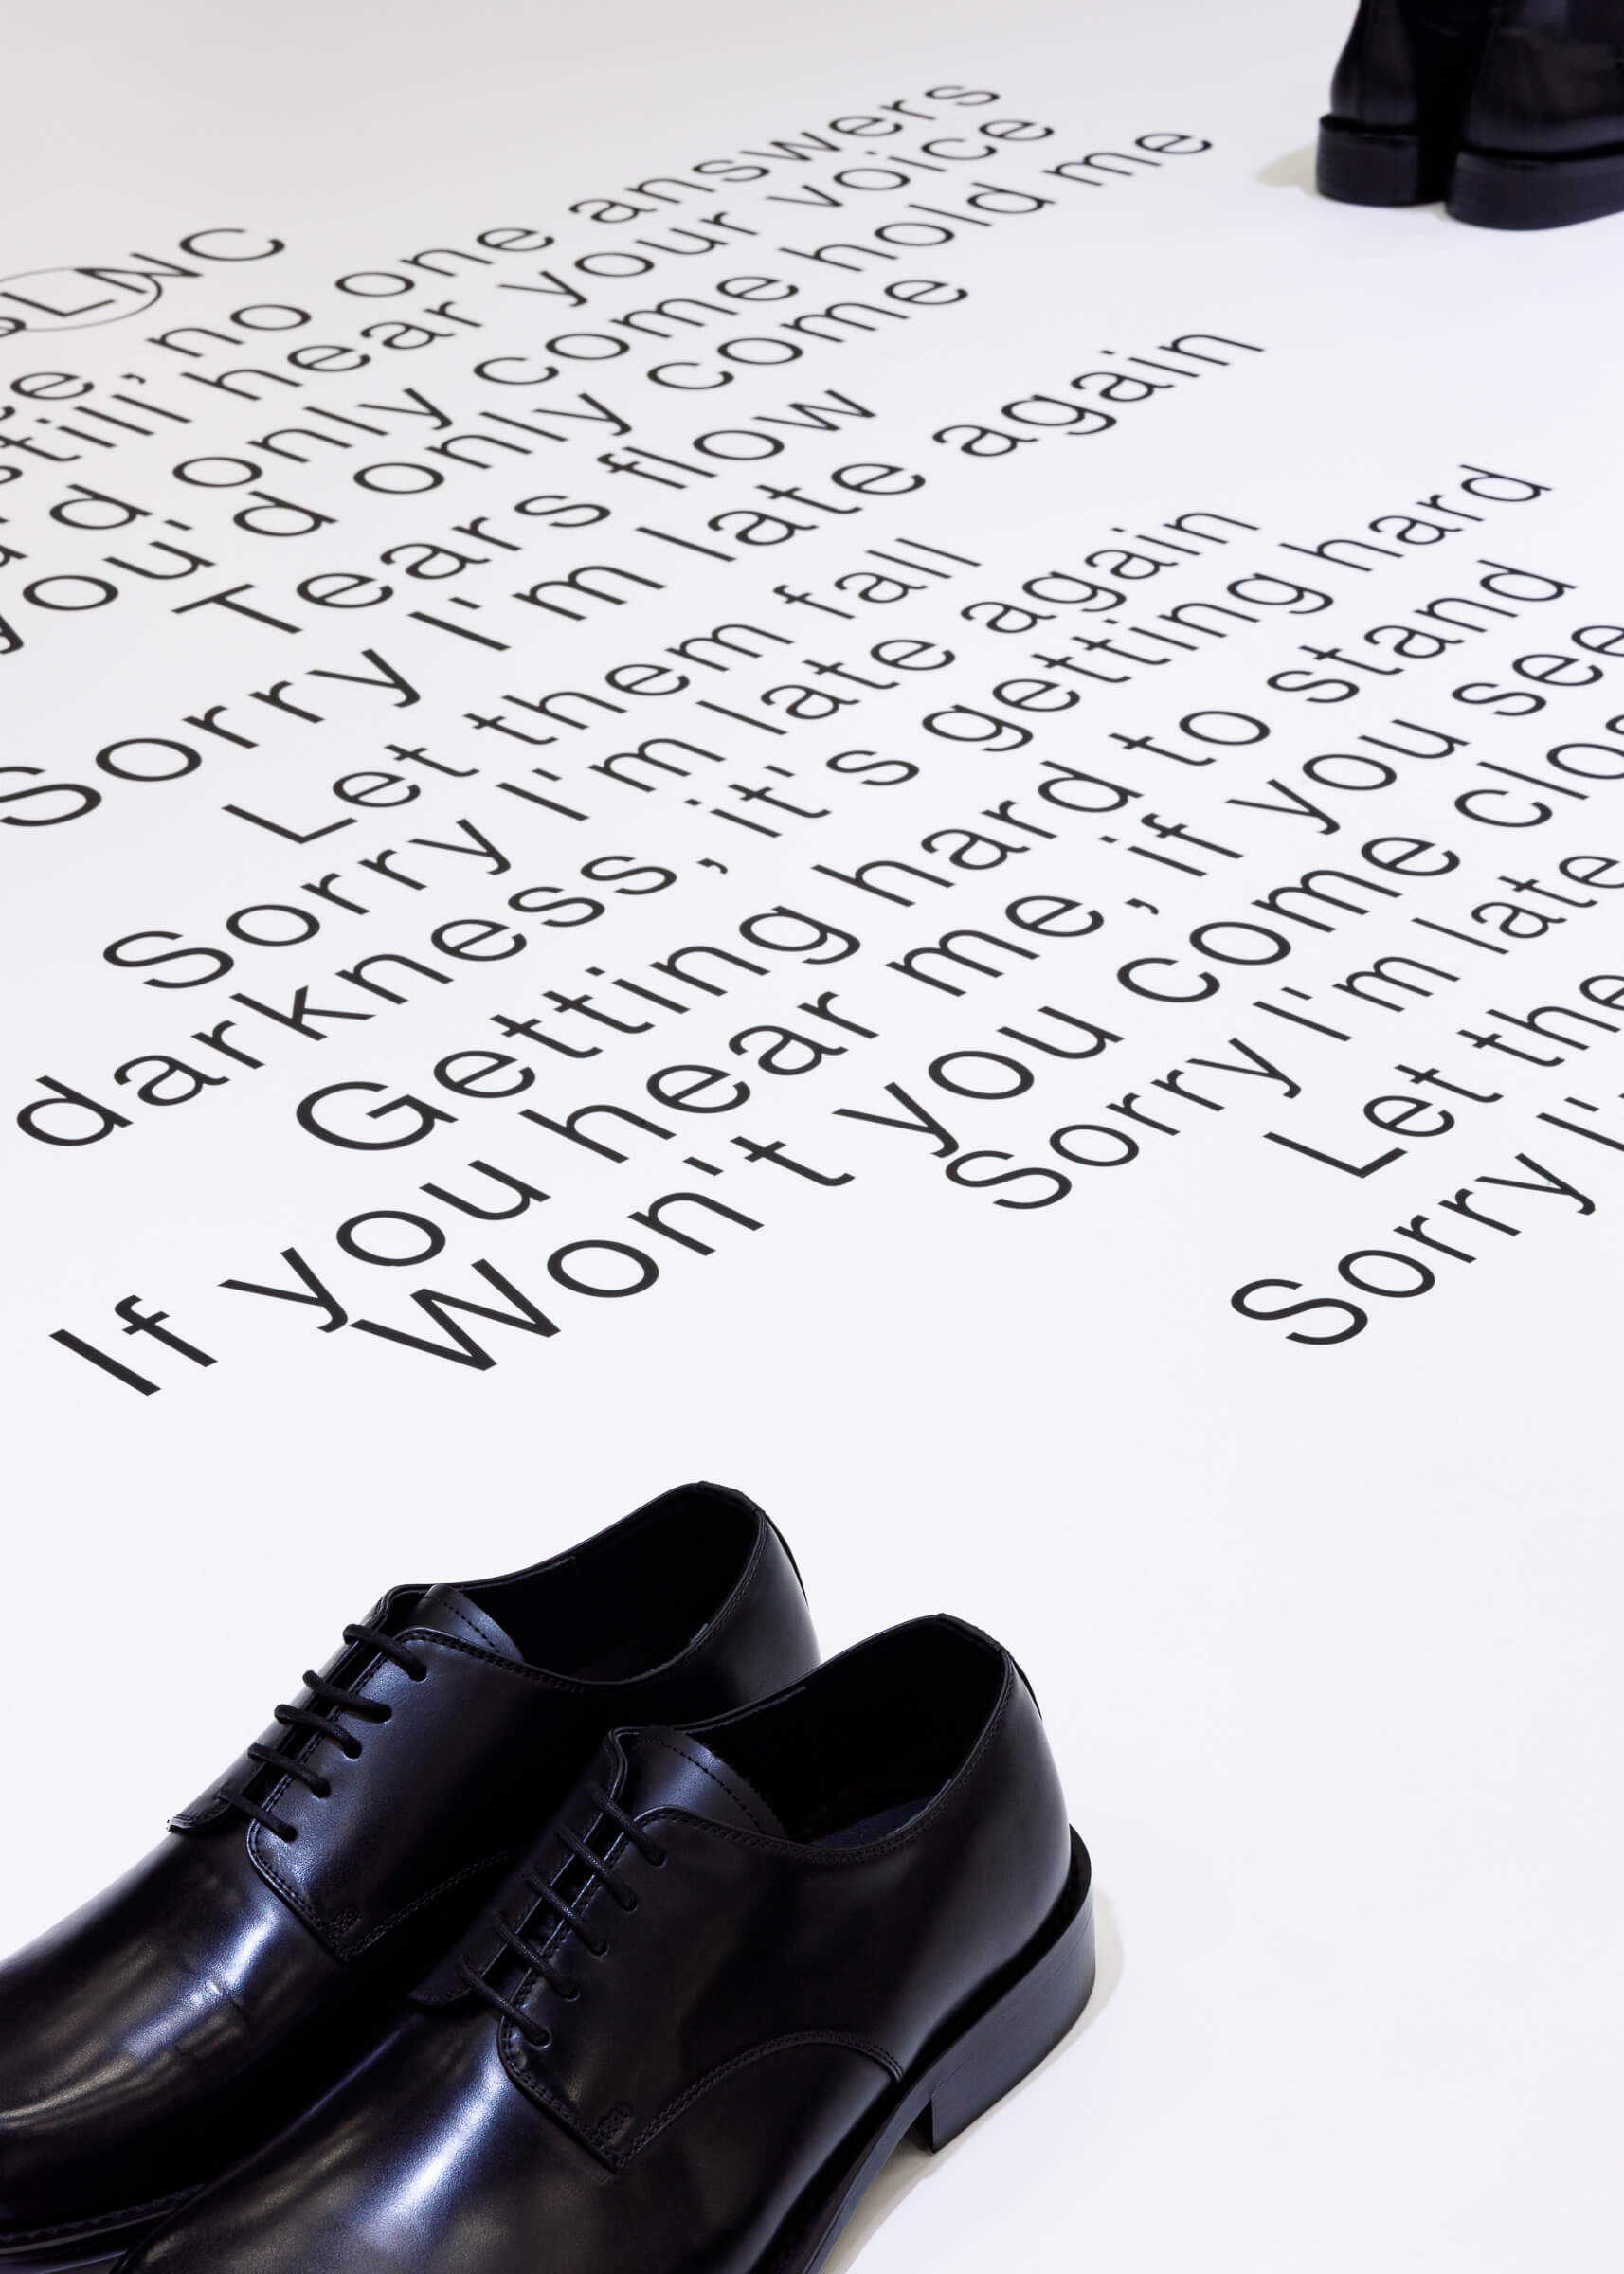 BLNC
no one answers
still hear your voice
only come hold me
you'd only come
Tears flow
Sorry I'm late again
Let them fall
Sorry I'm late again
darkness, it's getting hard
Getting hard to stand
If you hear me, if you see
Won't you come
Sorry I'm late
Let
Sorry